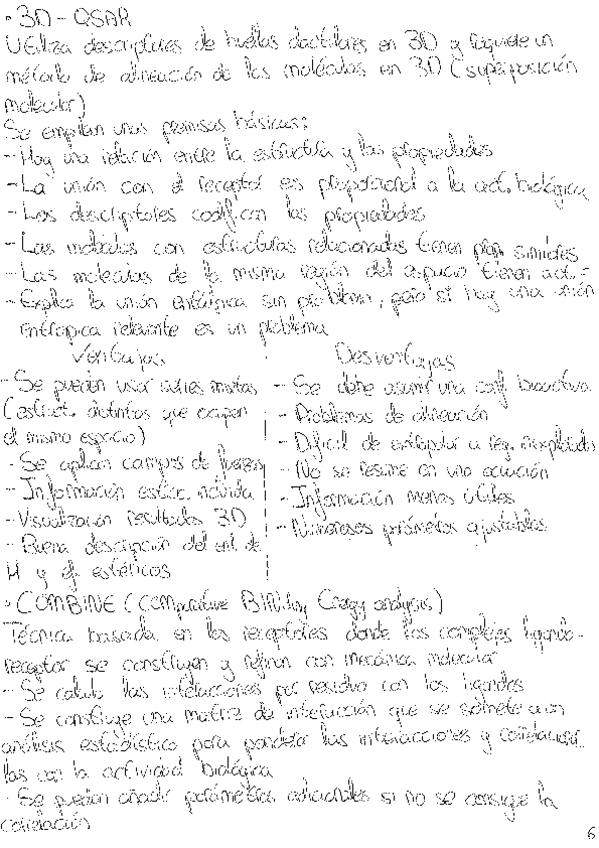 • 3D - QSAR
Utiliza descriptores de huellas dactilares en 3D y requiere un
método de alineación de las moléculas en 3D (superposición
molecular)
Se emplean unas premisas básicas:
- Hay una relación entre la estructura y las propiedades
- La unión con el receptor es proporcional a la act. biológica
- Los descriptores codifican las propiedades
- Las moléculas con estructuras relacionadas tienen prop. similares
- Las moléculas de la misma región del espacio tienen act. =
- Explica la unión entálpica sin problema, pero si hay una unión
entrópica relevante es un problema
Ventajas
Desventajas
- Se pueden usar series mixtas
(estruct. distintas que ocupen
el mismo espacio)
- Se aplican campos de fuerzas
- Información estruc. nítida
- Visualización resultados 3D
- Buena descripción del ent. de
H y ef. estéricos
- Se debe asumir una conf. bioactiva
- Problemas de alineación
- Difícil de extrapolar a reg. inexploradas
- No se resume en una ecuación
- Información menos útiles
- Numerosos parámetros ajustables
• COMBINE (COMparative BINding Energy analysis)
Técnica basada en los receptores donde los complejos ligando-
receptor se construyen y refinan con mecánica molecular
- Se calcula las interacciones por residuo con los ligandos
- Se construye una matriz de interacción que se somete a un
análisis estadístico para ponderar las interacciones y correlacionar
las con la actividad biológica
- Se pueden añadir parámetros adicionales si no se consigue la
correlación
6